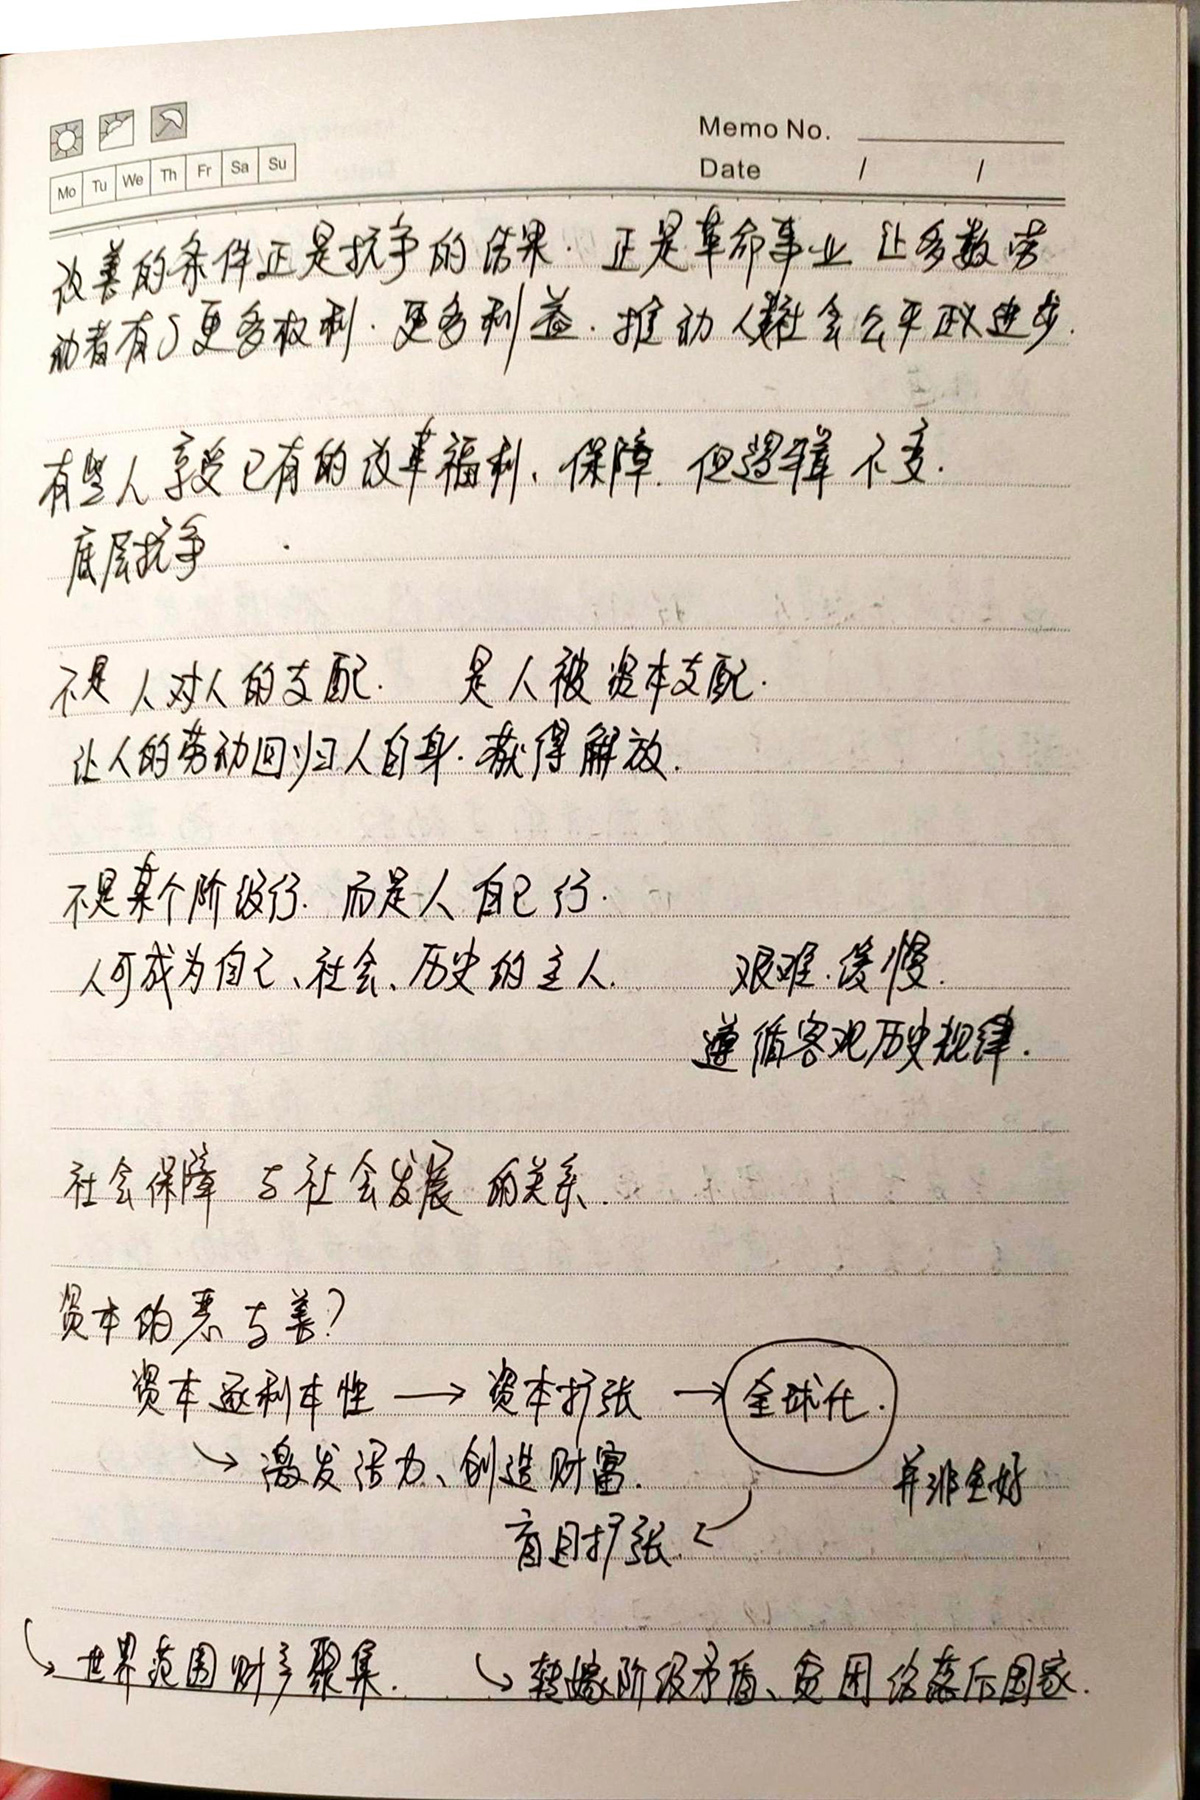 Memo No.
Mo Tu We Th Fr Sa Su
Date / /
改善的条件正是抗争的结果. 正是革命事业 让多数劳
动者有了更多权利. 更多利益. 推动人类社会公平正义进步.
有些人享受已有的改革福利、保障. 但逻辑不变.
底层抗争
不是人对人的支配. 是人被资本支配.
让人的劳动回归人自身. 获得解放.
不是某个阶级行. 而是人自己行.
人可成为自己、社会、历史的主人. 艰难.缓慢.
遵循客观历史规律.
社会保障与社会发展的关系.
资本的恶与善?
资本逐利本性 → 资本扩张 → 全球化.
↘ 激发活力、创造财富. 并非全好
盲目扩张.
↘ 世界范围财产聚集. ↘ 转嫁阶级矛盾、贫困给落后国家.